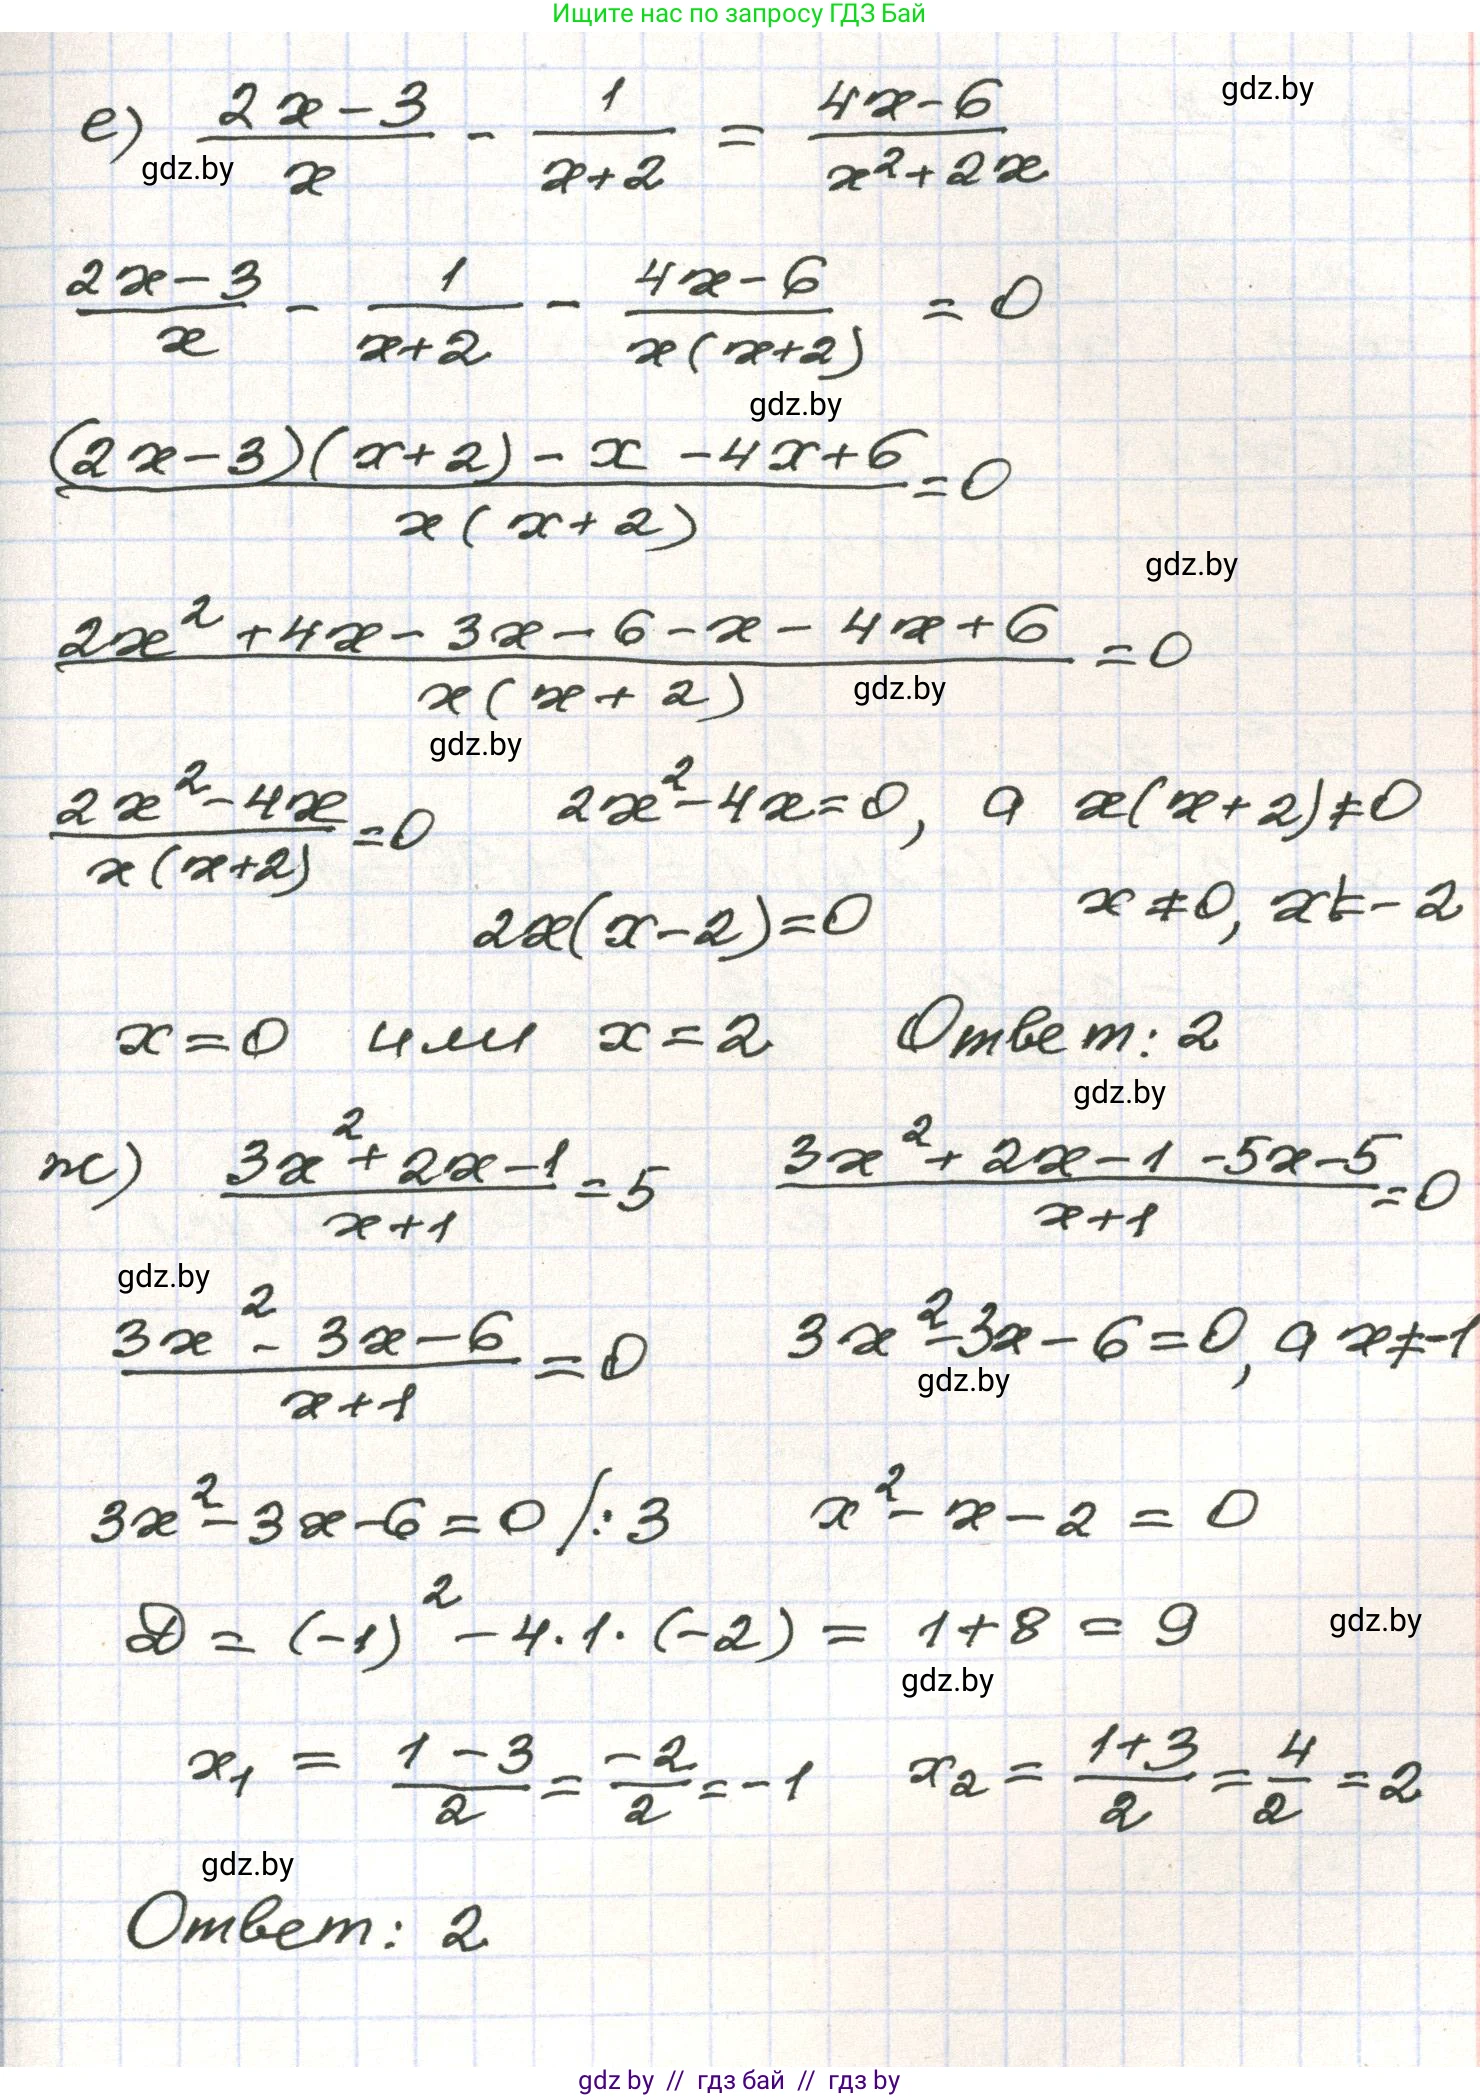 Ищите нас по запросу ГДЗ Бай
е) (2x-3)/x - 1/(x+2) = (4x-6)/(x²+2x)
gdz.by
gdz.by
(2x-3)/x - 1/(x+2) - (4x-6)/(x(x+2)) = 0
gdz.by
((2x-3)(x+2)-x-4x+6)/(x(x+2)) = 0
gdz.by
(2x²+4x-3x-6-x-4x+6)/(x(x+2)) = 0
gdz.by
gdz.by
(2x²-4x)/(x(x+2)) = 0 2x²-4x=0, а x(x+2)≠0
2x(x-2)=0 x≠0, x≠-2
x=0 или x=2 Ответ: 2
gdz.by
ж) (3x²+2x-1)/(x+1) = 5 (3x²+2x-1-5x-5)/(x+1) = 0
gdz.by
(3x²-3x-6)/(x+1) = 0 3x²-3x-6=0, а x≠-1
gdz.by
3x²-3x-6=0 /:3 x²-x-2=0
D = (-1)²-4·1·(-2) = 1+8 = 9
gdz.by
gdz.by
x₁ = (1-3)/2 = -2/2 = -1 x₂ = (1+3)/2 = 4/2 = 2
gdz.by
Ответ: 2
gdz by // гдз бай // гдз by